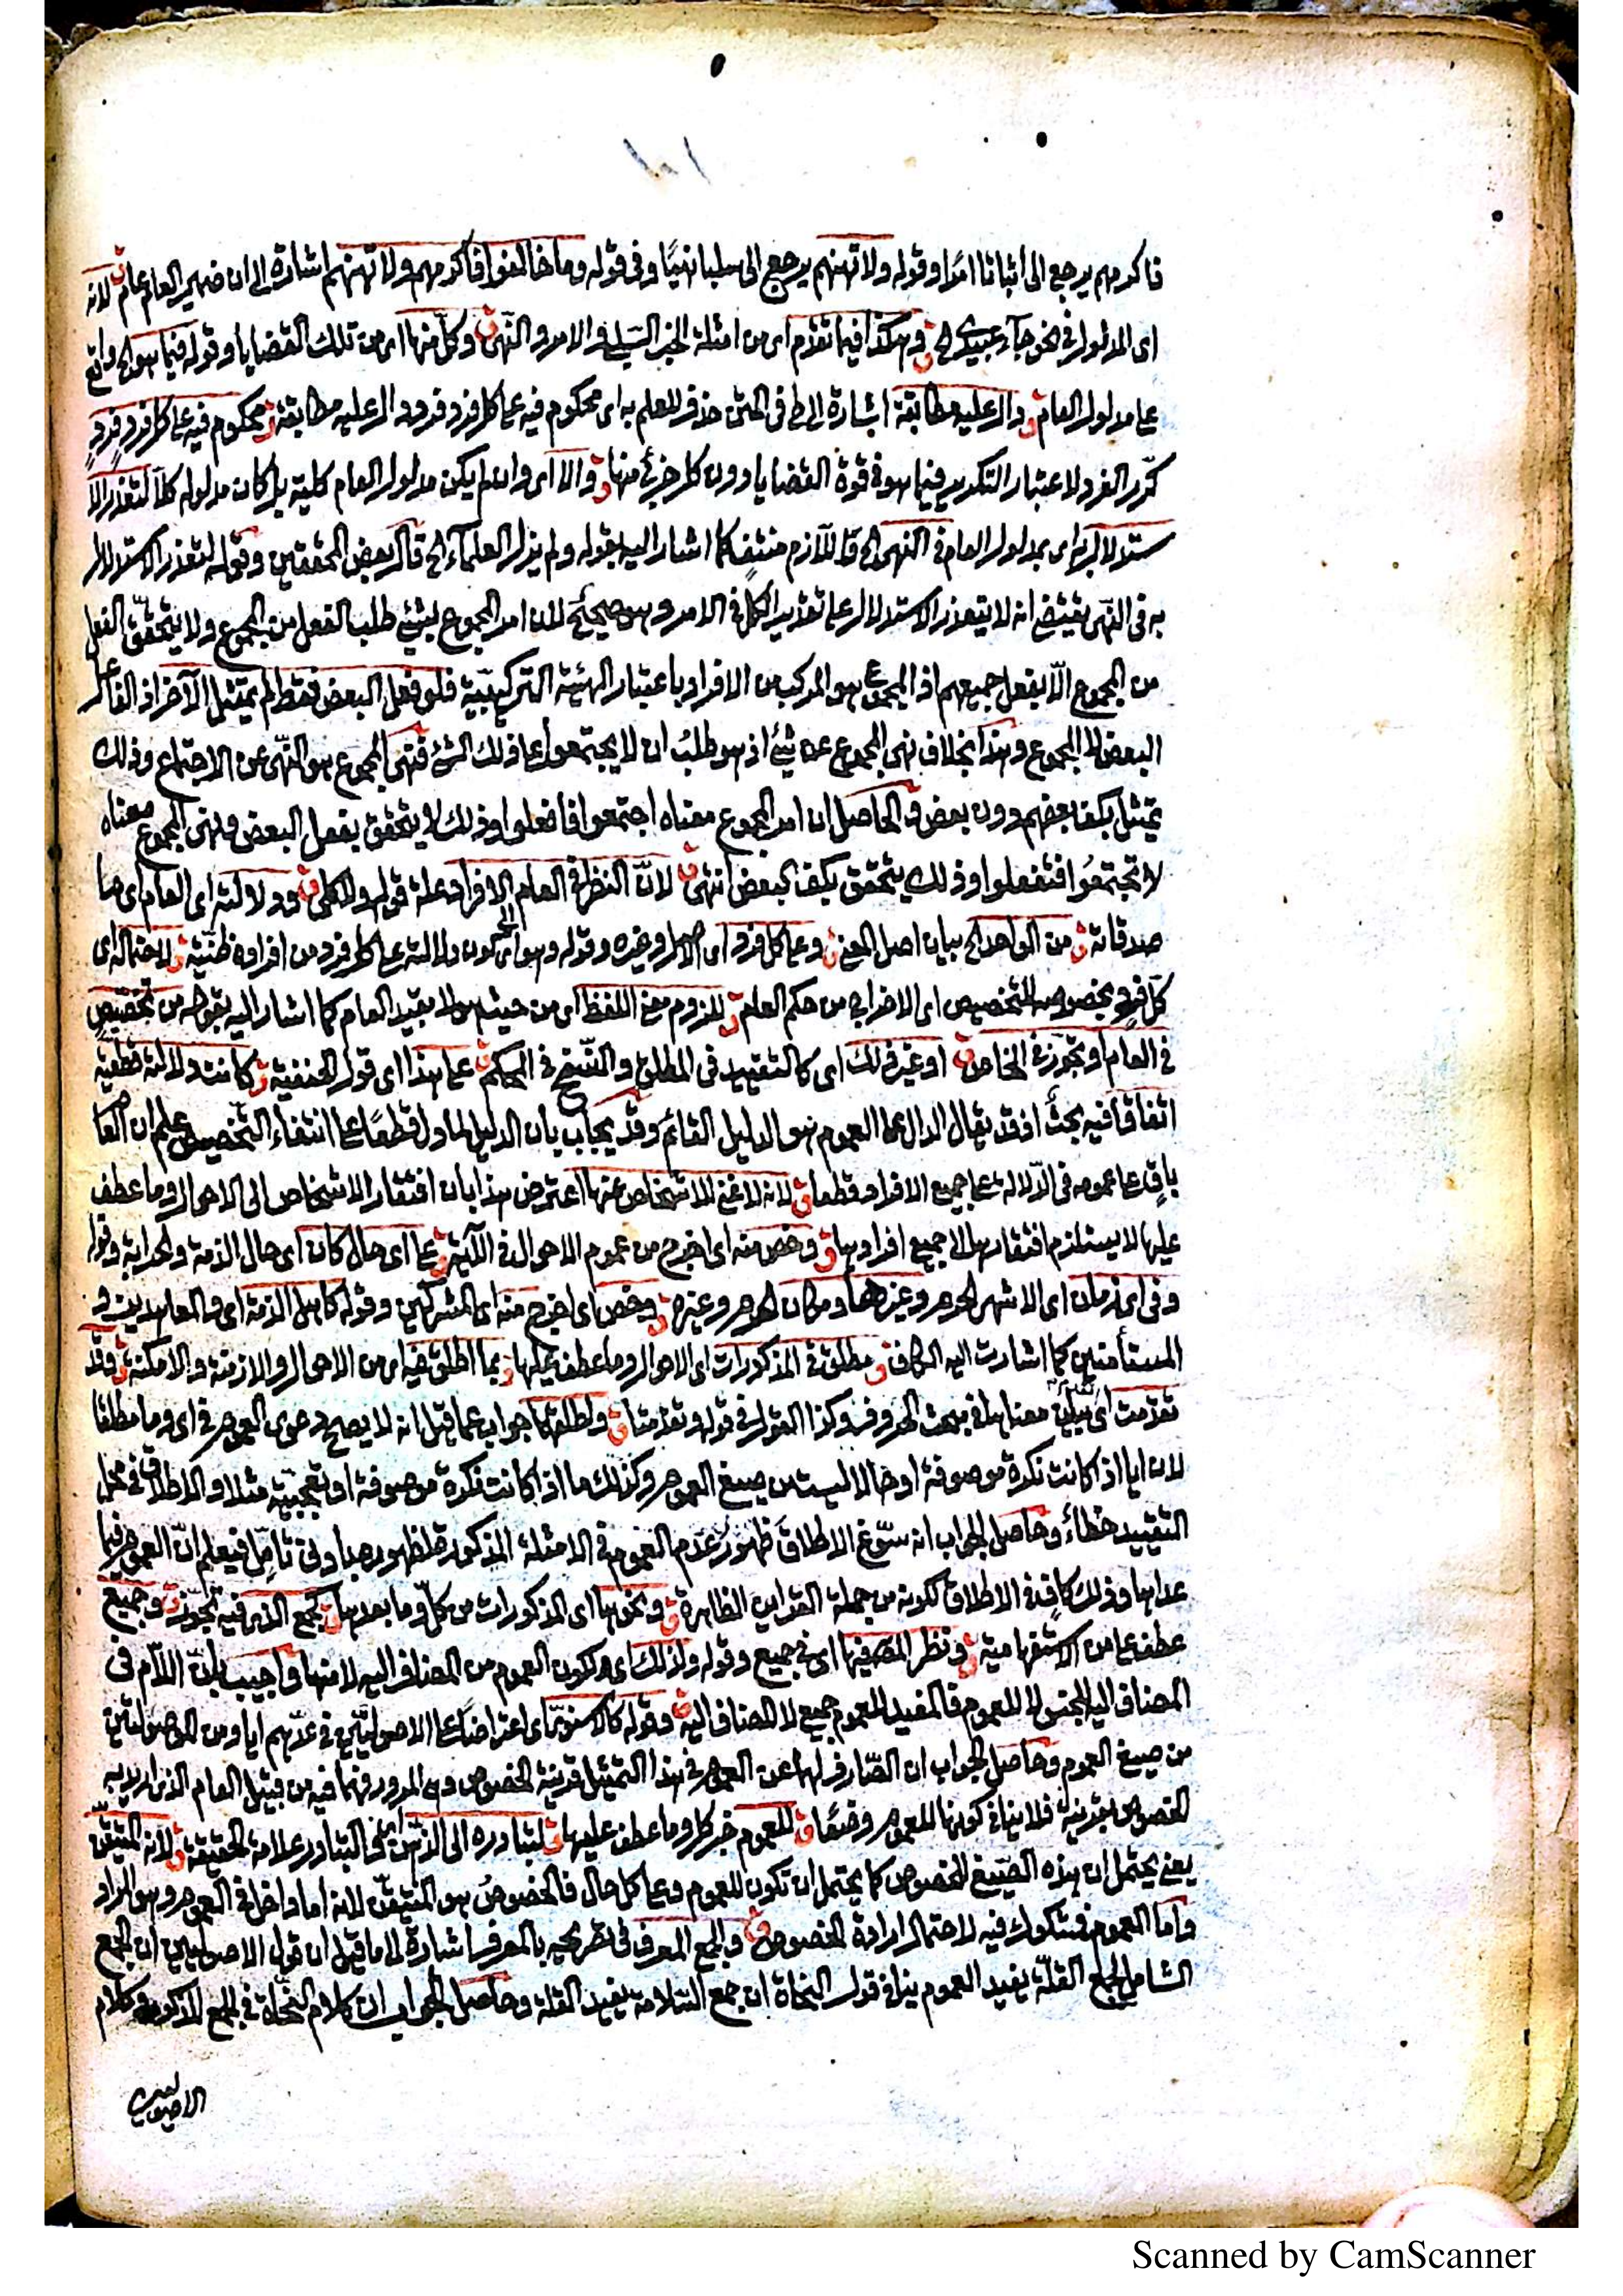 ١٠١
فاكرمهم يرجع الى اثباتا امرًا وقوله ولا تهنهم يرجع الى سلبا نهيًا وفى قوله وما خالفوا فاكرمهم ولا تهنهم اشارة الى ان ضمير العام عام ق لانه
اى المدلول فى نحو جآء عبيدى الخ ق وهكذا فيما تقدم اى من امثلة الخبر السلبى والامر والنّهى ق وكل منها اى من تلك القضايا وقوله فيما هو الخ واقع
على مدلول العام ق ودال عليه مطابقة اشارة الى ط فى المتن حذف للعلم به اى محكوم فيه على كل فرد فرد دال عليه مطابقة ق محكوم فيه على كل فرد فردٍ
كرّر الفرد لاعتبار التكرير فيما هو فى قوة القضايا دون كل جزئ منها ق والا اى وان لم يكن مدلول العام كلية بل كان مدلوله كلاً لتعذر الا
ستدلال به اى بمدلول العام فى النهى الخ قا للآزم منتف كما اشار اليه بقوله ولم يزل العلمآء الخ قال بعض المحققين وقوله لتعذر الاستدلال
به فى النّهى يقتضى انه لا يتعذر الاستدلال على تقدير الكل فى الامر وهو صحيح لان امر المجموع بشئ طلب الفعل من المجموع ولا يتحقق الفعل
من المجموع الّا بفعل جميعهم اذ المجموع هو المركب من الافراد باعتبار الهيئة التركيبيّة فلو فعل البعض فقط لم يمتثل الآخر اذ الفاعل
البعض لا المجموع وهذا بخلاف نهى المجموع عن شئ اذ هو طلبُ ان لا يجتمعوا على ذلك الشئ فنهى المجموع هو النّهى عن الاجتماع وذلك
يمتثل بكف بعضهم دون بعض فى الحاصل ان امر المجموع معناه اجتمعوا فافعلوا وذلك لا يتحقق بفعل البعض ونهى المجموع معناه
لا تجتمعُوا فتفعلوا وذلك يتحقق بكف البعض انتهى ق لانّ النظر فى العام الى الافراد علة قوله ولا كلى ق ودلالته اى العام اى ما
صدقاته ق من الواحد الخ بيان اصل المعنى ق وعلى كل فرد اى الاصل وغيره وقوله وهو اى كون دلالته على كل فرد من افراده ظنّية ق لاحتماله اى
كل فرد بخصوصه للتخصيص اى الاخراج من حكم العام ق للزوم معنى اللفظ اى من حيث هو لا بقيد العام كما اشار اليه بقوله من تخصيص
فى العام او تجوز فى الخاص ق او غير ذلك اى كالتقييد فى المطلق والنّسخ فى المحكم ق على هذا اى قول الحنفية ق كانت دلالته قطعية
اتفاقا فيه بحثٌ اذ قد يقال الدال على العموم هو الدليل القائم وقد يجاب بان الدليل لما دل قطعًا على انتفاء التخصيص علم ان العا
باقٍ على عمومه فى الدّلالة على جميع الافراد قطعا ق لانه لا غنى للاشخاص عنها اعترض هذا بان افتقار الاشخاص الى الاحوال وما عطف
عليها لا يستلزم افتقارها الى جميع افرادها ق وخص منه اى اخرج من عموم الاحوال فى الآية ق على اى حال كان اى حال الذمة والحرابة وقوله
وفى اى زمان اى الاشهر الحرم وغيرها ومكان الحرم وغيره ق وخص اى اخرج منه اى المشركين وقوله كاهل الذمة اى والمعاهدين و
المستأمنين كما اشارت اليه الكاف ق مطلق فى المذكورات اى الاحوال وما عطف عليها ق بما اطلق فيه اى من الاحوال والازمنة والامكنة ق وقد
تقدمت اى معناها فى مبحث الحروف وكذا القول فى قوله وتقدمتا ق واطلقها جواب عما قيل انه لا يصح دعوى العموم فى اى وما مطلقا
لان ايا اذا كانت نكرة موصوفة او حالا ليست من صيغ العموم وكذلك ما اذا كانت نكرة موصوفة او تعجبيّة مثلا والاطلاق فى محل
التقييد خطاءً وحاصل الجواب انه سوّغ الاطلاق ظهورُ عدم العموم فى الامثلة المذكورة ظهورها بادنى تأمّل فيعلم انّ العموم فيما
عداها وذلك كافٍ فى الاطلاق لكونه من جملة القراين الظاهرة ق ونحوها اى المذكورات من كلّ وما بعدها ق كجمع الذى فيه تجوّز ق وجميع
عطف على من الاستفهامية ق ونظر المص فيها اى فى جميع وقوله ولذلك اى لكون العموم من المضاف اليه لا منها واجيب بانّ اللّام فى
المضاف اليه للجنس لا للعموم فالمفيد للعموم جميع لا المضاف اليه ق وقوله كالاسنوىّ اى اعتراضًا على الاصوليّين فى عدّهم ايا ومن الموصولتين
من صيغ العموم وحاصل الجواب ان الصّارف لهما عن العموم فى هذا التمثيل قرينة الخصوص وهى المرور فهما فيه من قبيل العام الذى اريد به
الخصوص بقرينة فلا ينافى كونهما للعموم وضعًا ق للعموم خبر كل وما عطف عليها ق لتبادره الى الذّهن اى والتبادر علامة الحقيقة ق لانه المتيقّن
يعنى يحتمل ان هذه الصّيغ للخصوص كما يحتمل ان تكون للعموم وعلى كل حال فالخصوصُ هو المتيقّن لانه اما داخل فى العموم او هو المراد
واما العموم فمشكوك فيه لاحتمال ارادة الخصوص ق والجمع المعرف فى تصريحه بالمعرف اشارة الى ما قيل ان قول الاصوليين ان الجمع
الشامل لجمع القلّة يفيد العموم ينافى قول النحاة ان جمع السّلامة يفيد القلة وحاصل الجواب ان كلام النّحاة فى الجمع المذكور وكلام
الاصوليين
Scanned by CamScanner